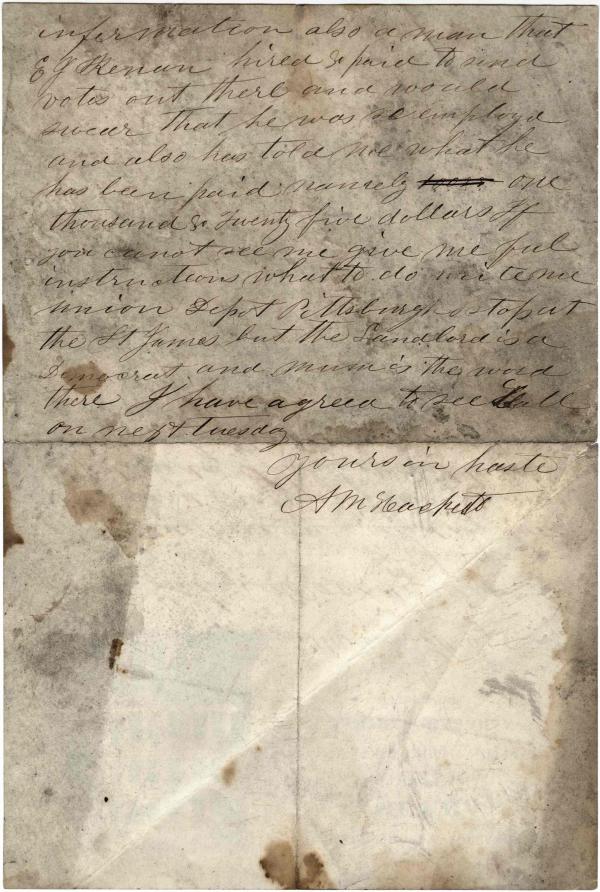 information also a man that
E G Kenan hired & paid to send
votes out there and would
swear that he was so employd
and also has told me what he
has been paid namely one
thousand & Twenty five dollars If
you canot see me give me ful
instructions what to do write me
union Depot Pittsburgh stop at
the St James but the Landlord is a
Democrat and mum is the word
there I have agreed to see
on next tuesday
yours in haste
A M Hackett